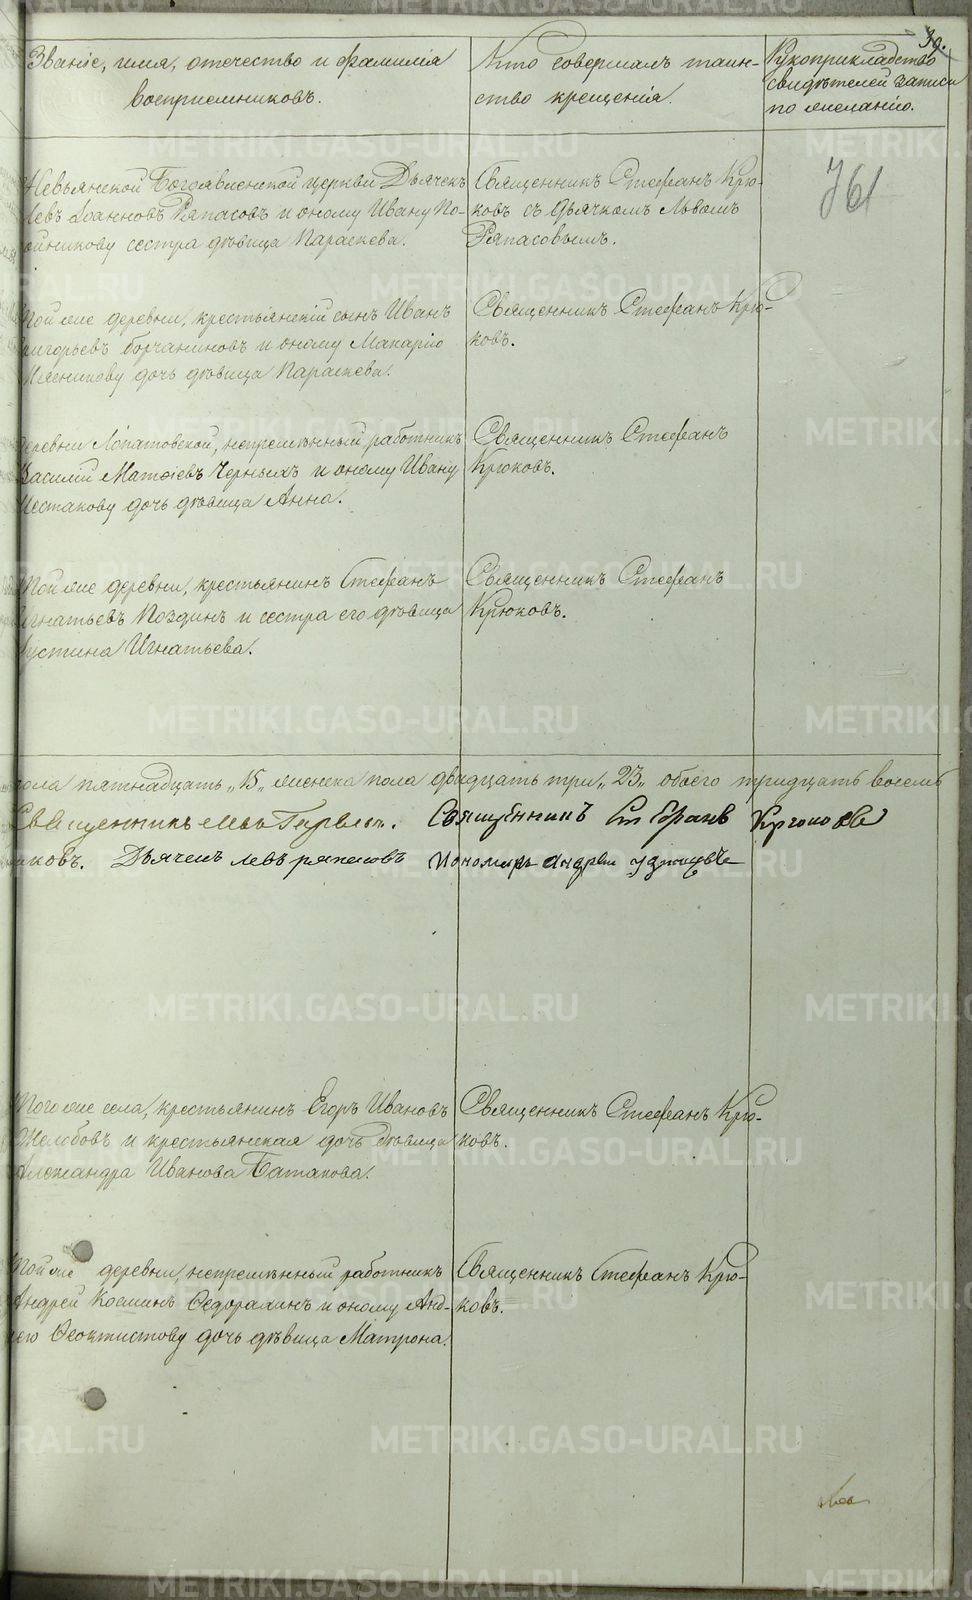 39.
Званіе, имя, отечество и фамилія
воспріемниковъ.
Кто совершалъ таин-
ство крещенія.
Рукоприкладство
свидѣтелей записи
по желанію.
761
Невьянской Богоявленской церкви Дьячекъ
Левъ Іоанновъ Ряпасовъ и оному Ивану По-
ойникову сестра дѣвица Параскева.
Священникъ Стефанъ Крю-
ковъ съ дьячкомъ Львомъ
Ряпасовымъ.
Той же деревни, крестьянскій сынъ Иванъ
ригорьевъ борчаниновъ и оному Макарію
дочь дѣвица Параскева.
Священникъ Стефанъ Крю-
ковъ.
деревни Лопатовской, непремѣнный работникъ
Василій Матѳіевъ Черныхъ и оному Ивану
Шестакову дочь дѣвица Анна.
Священникъ Стефанъ
Крюковъ.
Той же деревни, крестьянинъ Стефанъ
Игнатьевъ Поздинъ и сестра его дѣвица
устина Игнатьева.
Священникъ Стефанъ
Крюковъ.
пола пятнадцать „15„ женска пола двадцать три„ 23„ обоего тридцать восемь
Священникъ Священникъ Стефанъ Крюковъ
иковъ. Дьячекъ левъ ряпасовъ Пономарь Андрей
Того же села, крестьянинъ Егоръ Ивановъ
Желобовъ и крестьянская дочь дѣвица
Александра Иванова Батакова.
Священникъ Стефанъ Крю-
ковъ.
Той же деревни, непремѣнный работникъ
Андрей Косминъ Ѳедорахинъ и оному Анд-
рею Ѳеоктистову дочь дѣвица Матрона.
Священникъ Стефанъ Крю-
ковъ.
METRIKI.GASO-URAL.RU